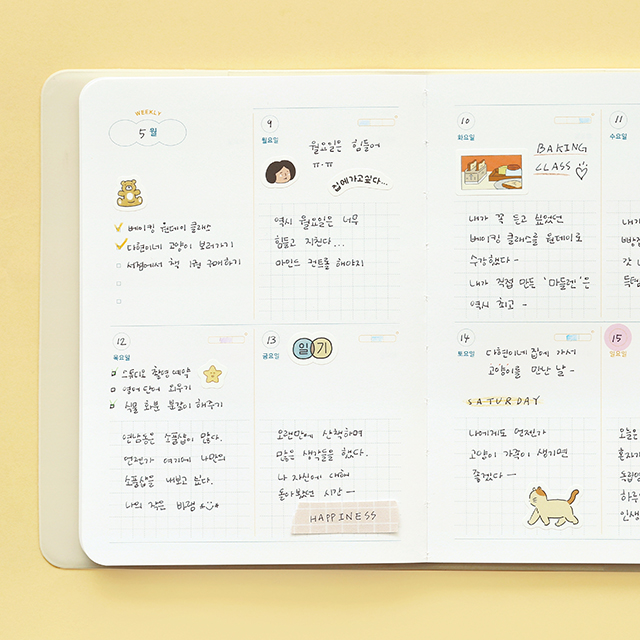 WEEKLY
5월
베이킹 원데이 클래스
다현이네 고양이 보러가기
서점에서 책 1권 구매하기
9
월요일
월요일은 힘들어
ㅠ.ㅠ
집에가고싶다...
역시 월요일은 너무
힘들고 지친다...
마인드 컨트롤 해야지
10
화요일
BAKING
CLASS
내가 꼭 듣고 싶었던
베이킹 클래스를 원데이로
수강했다 -
내가 직접 만든 '마들렌'은
역시 최고 -
11
수요일
내가
빠방
갓
득템
12
목요일
스튜디오 촬영 예약
영어 단어 외우기
식물 화분 분갈이 해주기
연남동은 소품샵이 많다.
언젠가 여기에 나만의
소품샵을 내보고 싶다.
나의 작은 바램
13
금요일
일기
오랜만에 산책하며
많은 생각들을 했다.
나 자신에 대해
돌아봤던 시간 -
HAPPINESS
14
토요일
다현이네 집에 가서
고양이를 만난 날 -
SATURDAY
나에게도 언젠가
고양이 가족이 생기면
좋겠다 -
15
일요일
오늘은
혼자
독립영
하루
인생